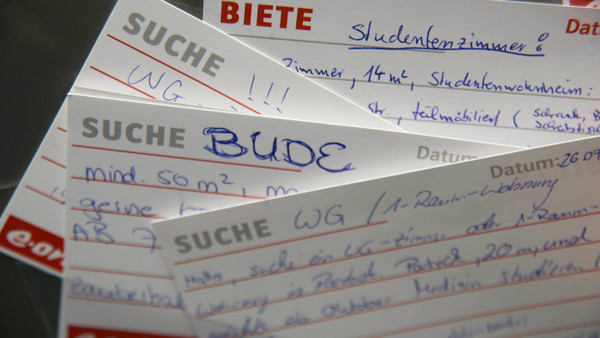 BIETE Studentenzimmer Dat
Zimmer, 14m², Studentenwohnheim:
Str., teilmöbliert ( Schrank, B
Schreibtisch
SUCHE
WG !!!
SUCHE BUDE Datum
mind. 50 m²,
gerne
AB 7
e-or
SUCHE WG / 1-Raum-Wohnung Datum: 26.09
Hallo, suche ein WG-Zimmer oder 1-Raum-
Wohnung in Patrick, 20 m, und
möchte ab Oktober Medizin studieren (